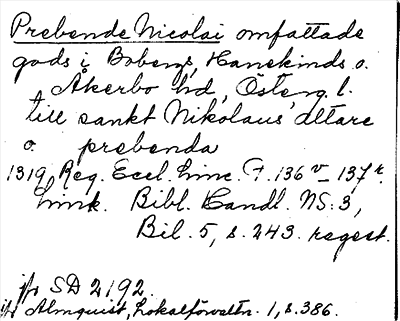 Prebende Nicolai omfattade
gods i Bobergs, Hanekinds o.
Åkerbo hd, Österg. l.
till sankt Nikolaus' altare
o. prebenda
1319, Reg. Eccl. Linc. F. 136 v – 137 r.
Link. Bibl. Handl. NS. 3,
Bil. 5, s. 243. regest.
jfr SD 2192.
jfr Almquist, Lokalförvaltn. 1, s. 386.